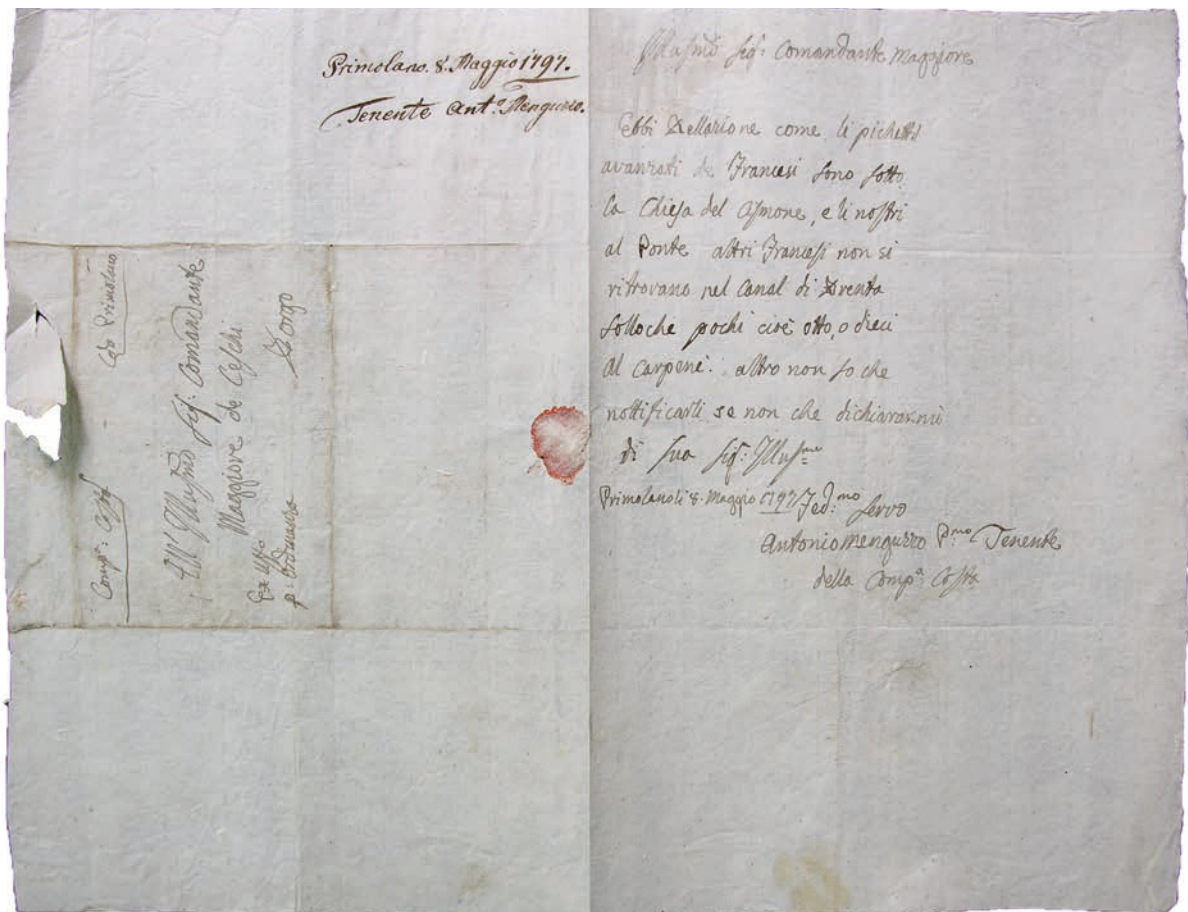 Primolano. 8. Maggio 1797.
Tenente Ant.º Menguzzo.
Compª: Costa
Da Primolano
All' Illusmo Sig: Comandante
Maggiore de Ceschi
Ex Uffo
p: Ordinanza
Borgo
Illusmo Sig: Comandante Maggiore
Ebbi Rellazione come li pichetti
avanzati de Francesi sono sotto
la Chiesa del Cismone, e li nostri
al Ponte altri Francesi non si
ritrovano nel Canal di Brenta
solloche pochi cioè otto, o dieci
al Carpenè: altro non so che
nottificarli se non che dichiararmi
di sua Sig: Illusme
Primolano li 8. Maggio 1797 Fed.mo Servo
Antonio Menguzzo P.mo Tenente
della Compª: Costa